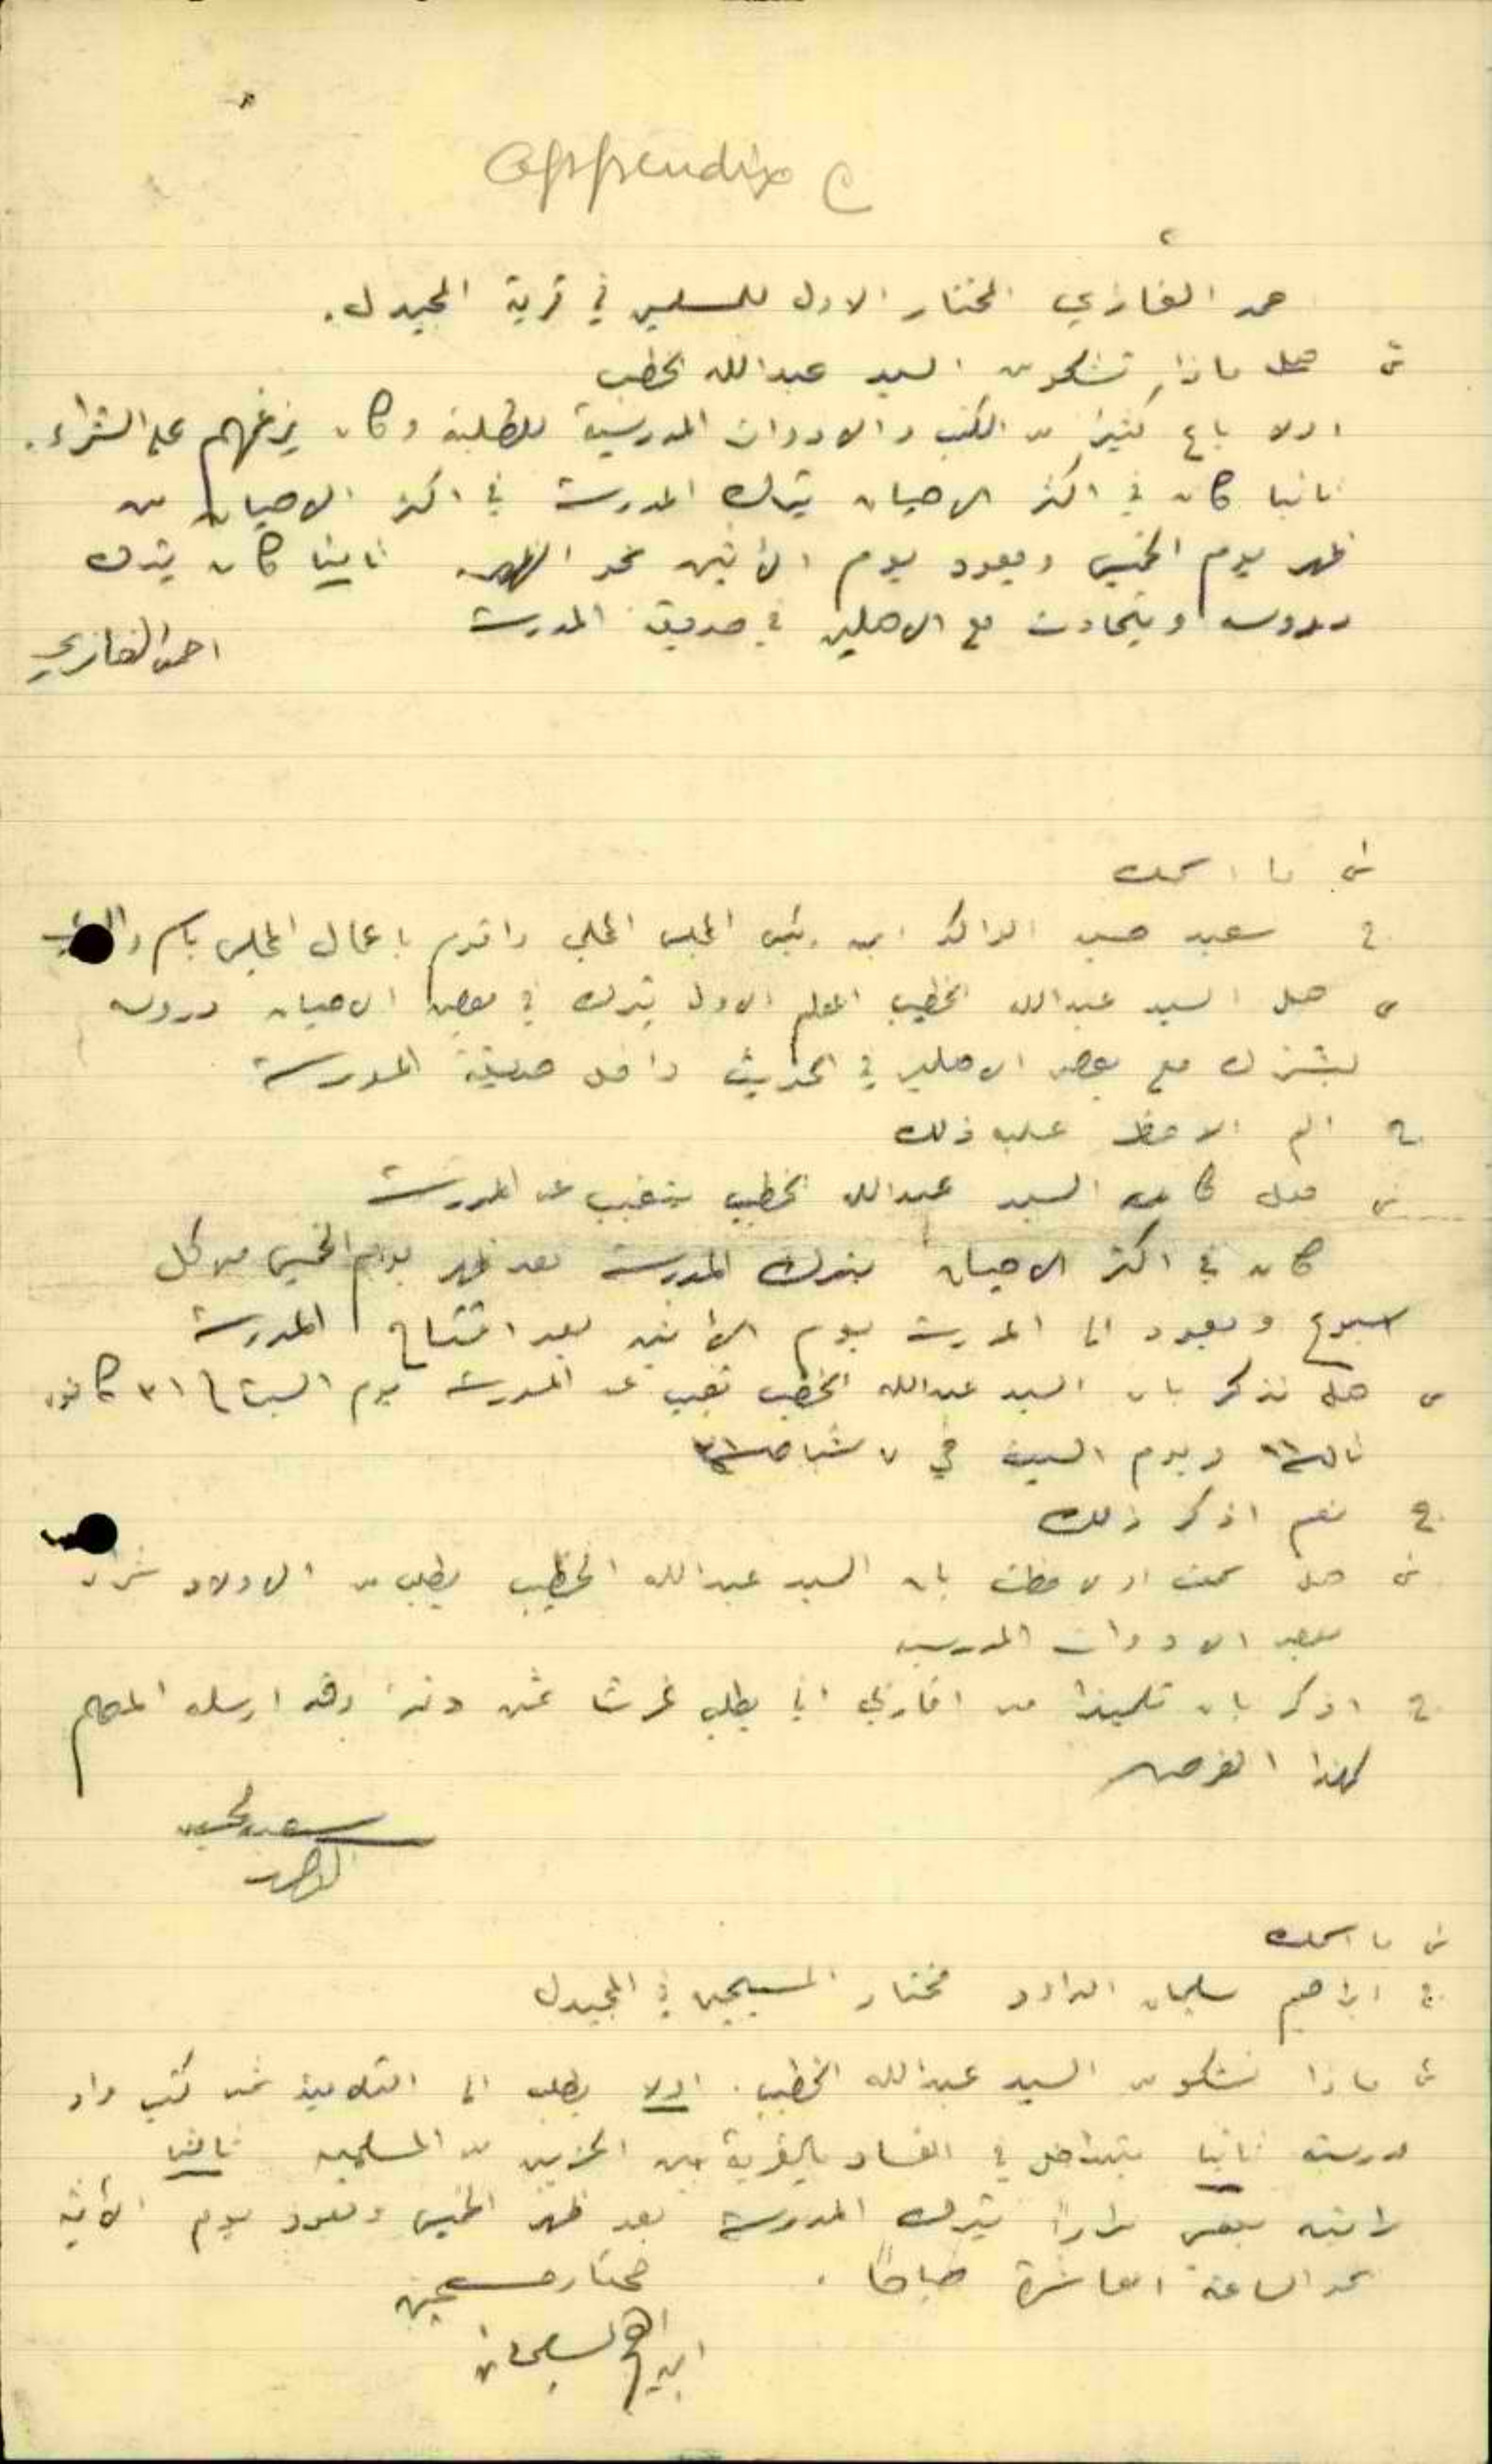 appendix C
حمد الغازي المختار الاول للمسلمين في قرية المجيدل.
س هل ماذا تشكو من السيد عبدالله الخطيب
اولا باع كثيرا من الكتب والادوات المدرسية للطلبة وكان يرغمهم على الشراء.
ثانيا كان في اكثر الاحيان يترك المدرسة في اكثر الاحيان من
ظهر يوم الخميس ويعود يوم الاثنين نحو الظهر ثانيا كان يترك
دروسه ويتحادث مع الاهلين في حديقة المدرسة
احمد الغازي
س ما اسمك
ج سعيد حسين ابن رئيس المجلس المحلي واقوم باعمال المجلس باسم والدي
س هل السيد عبدالله الخطيب المعلم الاول يترك في بعض الاحيان دروسه
ليشترك مع بعض الاهلين في الحديث داخل حديقة المدرسة
ج الم الاحظ عليه ذلك
س هل كان السيد عبدالله الخطيب يتغيب عن المدرسة
كان في اكثر الاحيان يترك المدرسة بعد ظهر يوم الخميس من كل
اسبوع ويعود الى المدرسة يوم الاثنين بعد افتتاح المدرسة
س هل تذكر بان السيد عبدالله الخطيب تغيب عن المدرسة يوم السبت في ٣١ كانون
ويوم السبت في ٧ شباط
ج نعم اذكر ذلك
س هل سمعت او لاحظت بان السيد عبدالله الخطيب يطلب من الاولاد شراء
بعض الادوات المدرسية
ج اذكر بان تلميذا من اقاربي اتى يطلب غرشا ثمن وقد ارسله المعلم
لهذا الغرض
سعيد الحسين
س ما اسمك
ج ابراهيم سليمان الداود مختار المسيحيين في المجيدل
س ماذا تشكو من السيد عبدالله الخطيب. اولا يطلب الى التلاميذ ثمن كتب
مدرسية ثانيا يتداخل في الفساد بالقرية بين الحزبين من المسلمين ثالثا
رايته بنفسي مرارا يترك المدرسة بعد ظهر الخميس ويعود يوم الاثنين
نحو الساعة العاشرة صباحا.
مختار مسيحيين
ابراهيم سليمان